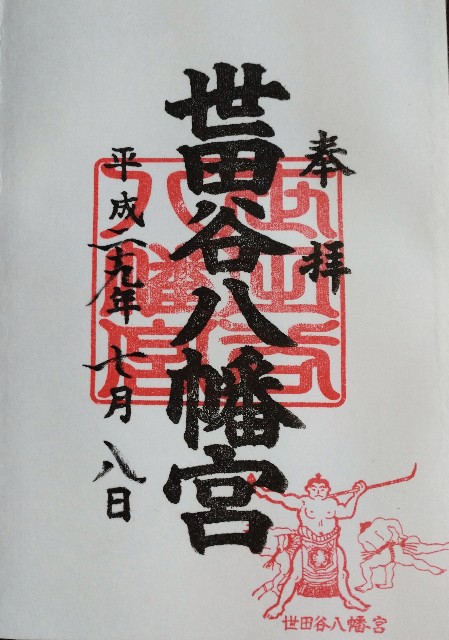 奉拝
世田谷八幡宮
平成二十九年七月八日
世田谷八幡宮
世田谷八幡宮